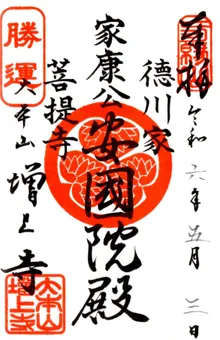 奉拝
令和六年五月三日
德川家
家康公
安國院殿
菩提寺
勝運
大本山
増上寺
大本山
増上寺